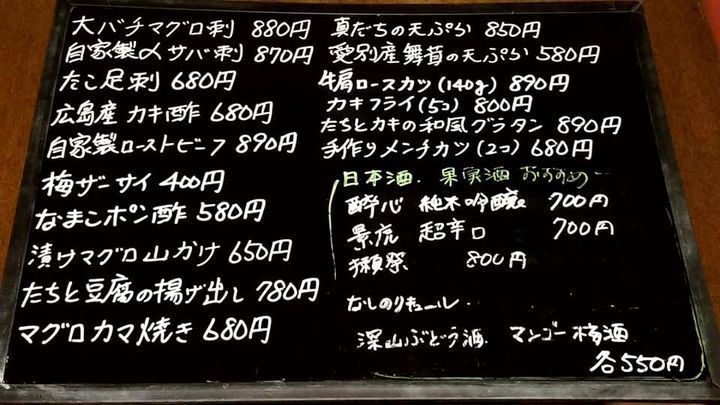 大バチマグロ刺 880円
自家製〆サバ刺 870円
たこ足刺 680円
広島産 カキ酢 680円
自家製ローストビーフ 890円
梅ザーサイ 400円
なまこポン酢 580円
漬けマグロ山かけ 650円
たちと豆腐の揚げ出し 780円
マグロカマ焼き 680円
真だちの天ぷら 850円
愛別産舞茸の天ぷら 580円
牛肩ロースカツ(140g) 890円
カキフライ(5コ) 800円
たちとカキの和風グラタン 890円
手作りメンチカツ(2コ) 680円
日本酒. 果実酒 おすすめー
酔心 純米吟醸 700円
景虎 超辛口 700円
獺祭 800円
なしのリキュール
深山ぶどう酒. マンゴー梅酒
各550円